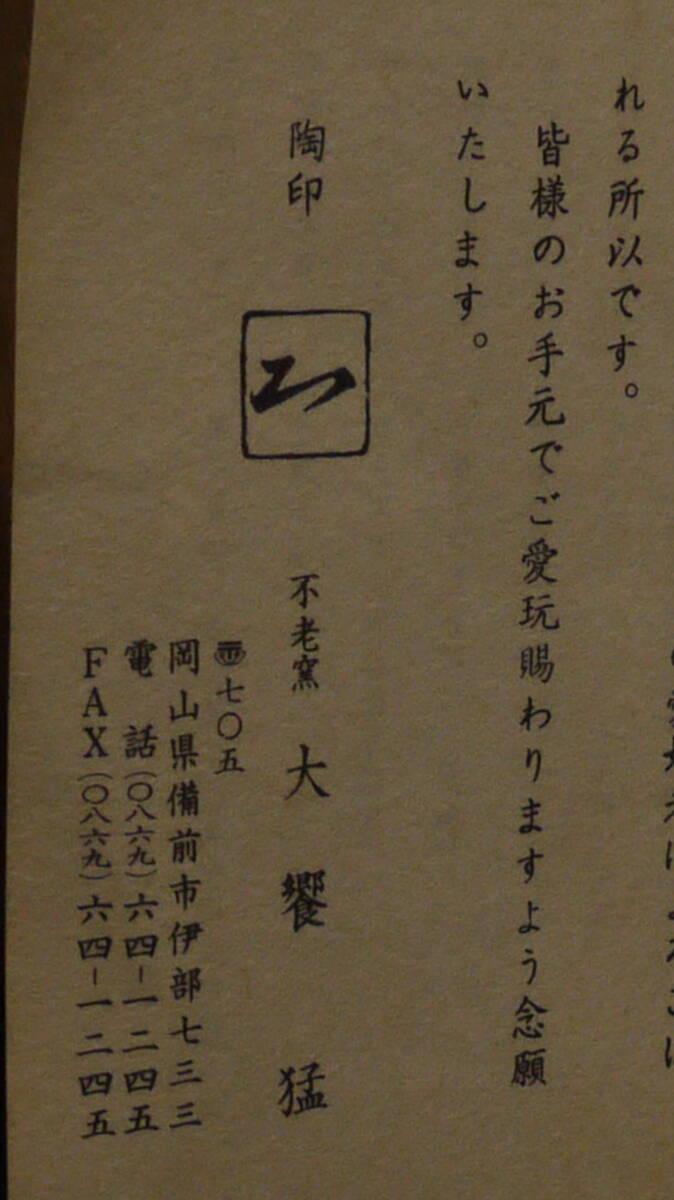 れる所以です。
皆様のお手元でご愛玩賜わりますよう念願
いたします。
陶印
不老窯 大饗 猛
〠七〇五
岡山県備前市伊部七三三
電話(〇八六九)六四-一二四五
FAX(〇八六九)六四-一二四五